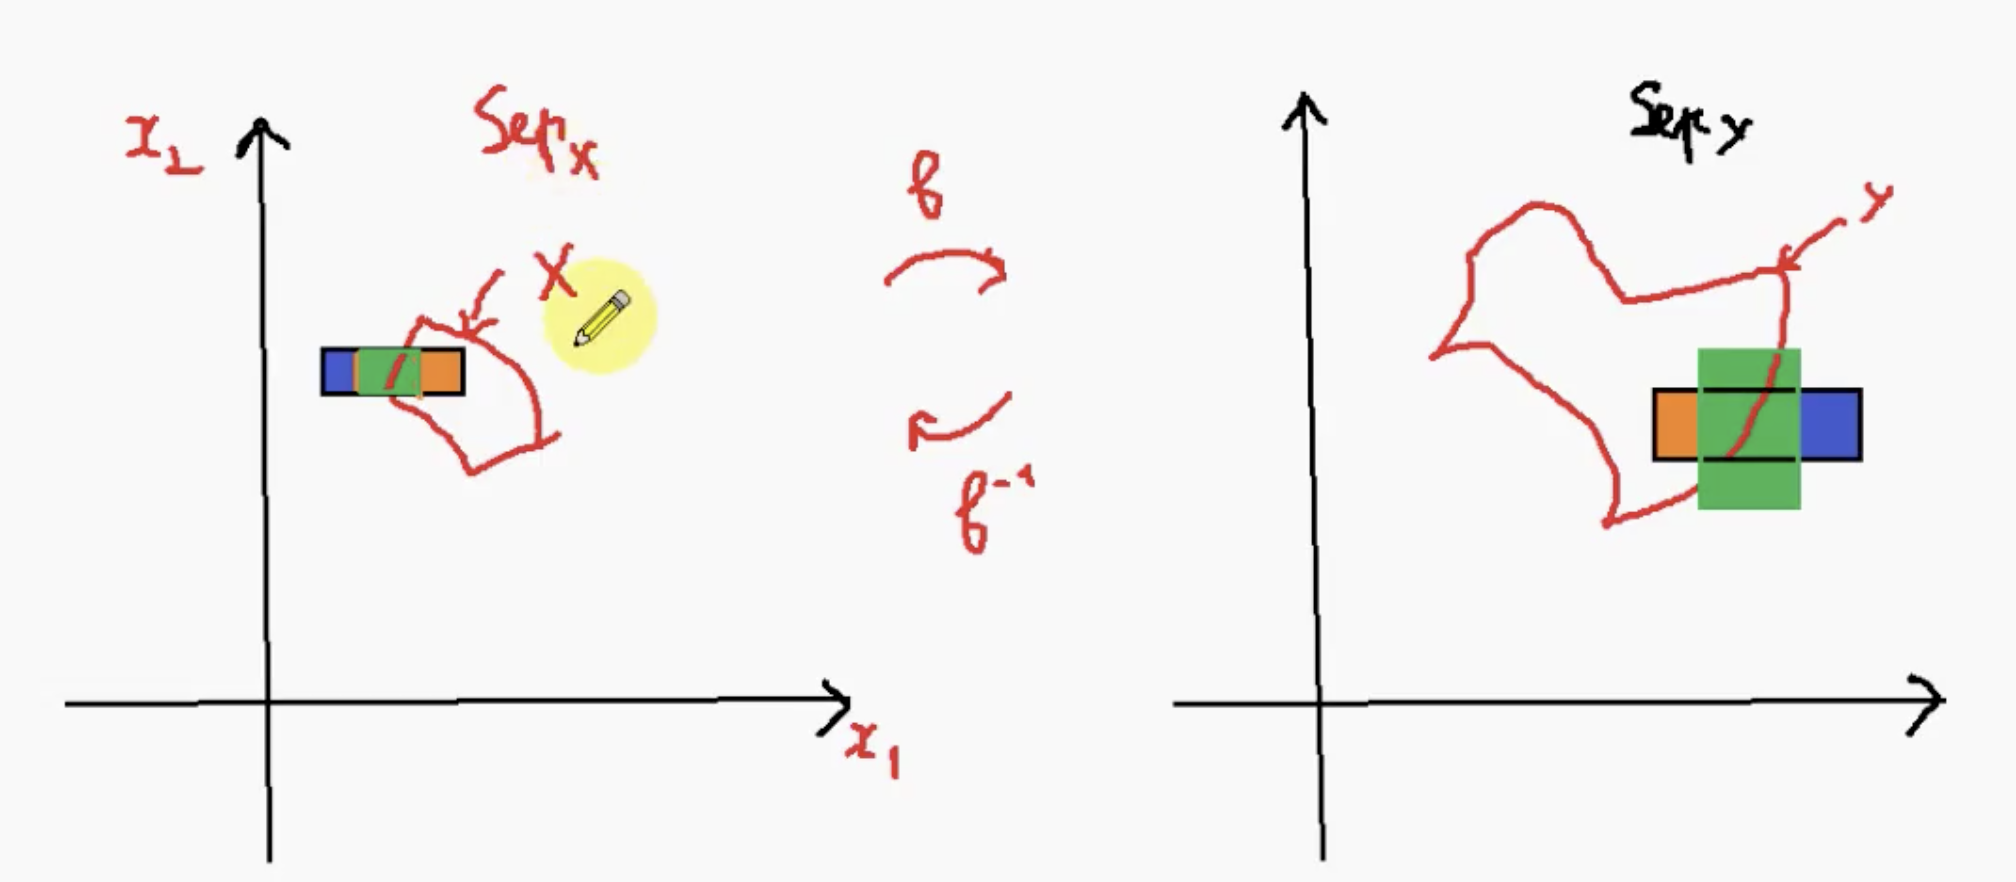 x₂
Sep_X
X
x₁
f
f⁻¹
Sep_Y
Y